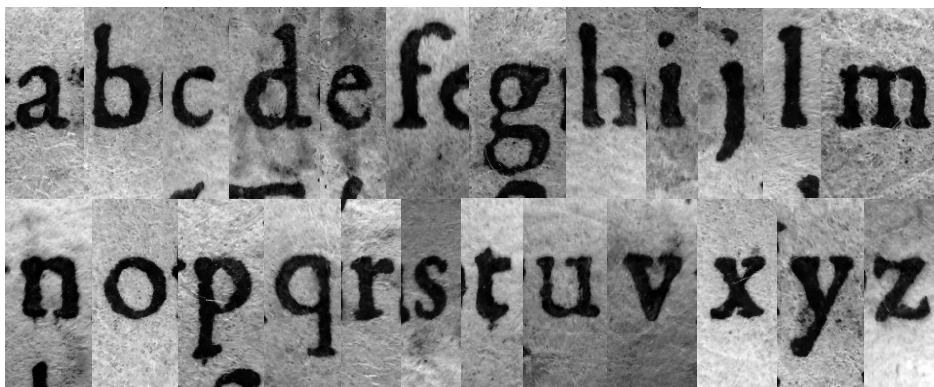 abcdefghijlm
nopqrstuvxyz